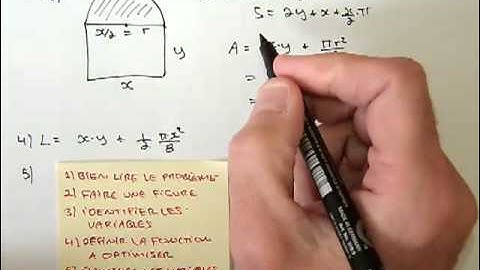 x/2 = r
y
x
5 = 2y + x + x/2 · π
A = x·y + πr²
=
=
4) L = x·y + 1/2 π·x²/8
5)
1) BIEN LIRE LE PROBLÈME
2) FAIRE UNE FIGURE
3) IDENTIFIER LES
VARIABLES
4) DÉFINIR LA FONCTION
A OPTIMISER